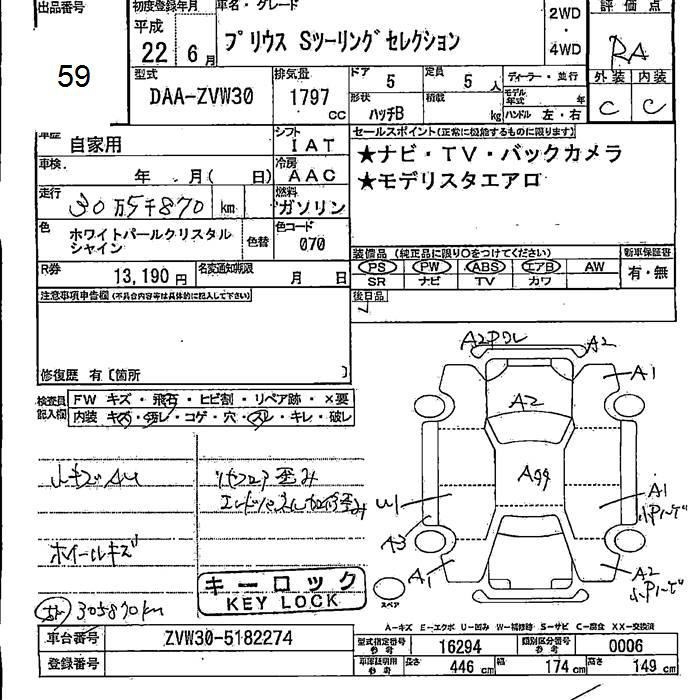 出品番号
59
初度登録年月
平成
22年 6月
車名・グレード
プリウス Sツーリングセレクション
2WD
・
4WD
評価点
RA
外装 内装
C C
型式
DAA-ZVW30
排気量
1797 cc
ドア 5
定員 5 人
形状 ハッチB
積載 kg
ディーラー・並行
モデル年式 年
ハンドル 左・右
車歴 自家用
シフト IAT
車検. 年 月( 日)
冷房 AAC
走行 30万5千870 km
燃料 ガソリン
色 ホワイトパールクリスタル
シャイン
色替
色コード 070
R券 13,190 円
名変通知期限 月 日
セールスポイント(正常に機能するものに限ります)
★ナビ・TV・バックカメラ
★モデリスタエアロ
装備品 (純正品に限り○をつけてください)
新車保証書
PS PW ABS エアB AW
SR ナビ TV カワ
有・無
後日品
注意事項申告欄(不具合内容等は具体的に記入して下さい)
修復歴 有〔箇所 〕
検査員記入欄
FW キズ・飛石・ヒビ割・リペア跡・×要
内装 キズ・汚レ・コゲ・穴・スレ・キレ・破レ
小キズAU
リヤフロア歪み
ホイールキズ
305870km
キーロック
KEY LOCK
A2
A2
A1
A2
A99
W1
A1
A3
A1
A2
スペア
A-キズ E-エクボ U-凹み W-補修跡 S-サビ C-腐食 XX-交換済
車台番号 ZVW30-5182274
登録番号
型式指定番号 参考 16294
類別区分番号 参考 0006
車庫証明用 参考 長さ 446 cm 幅 174 cm 高さ 149 cm